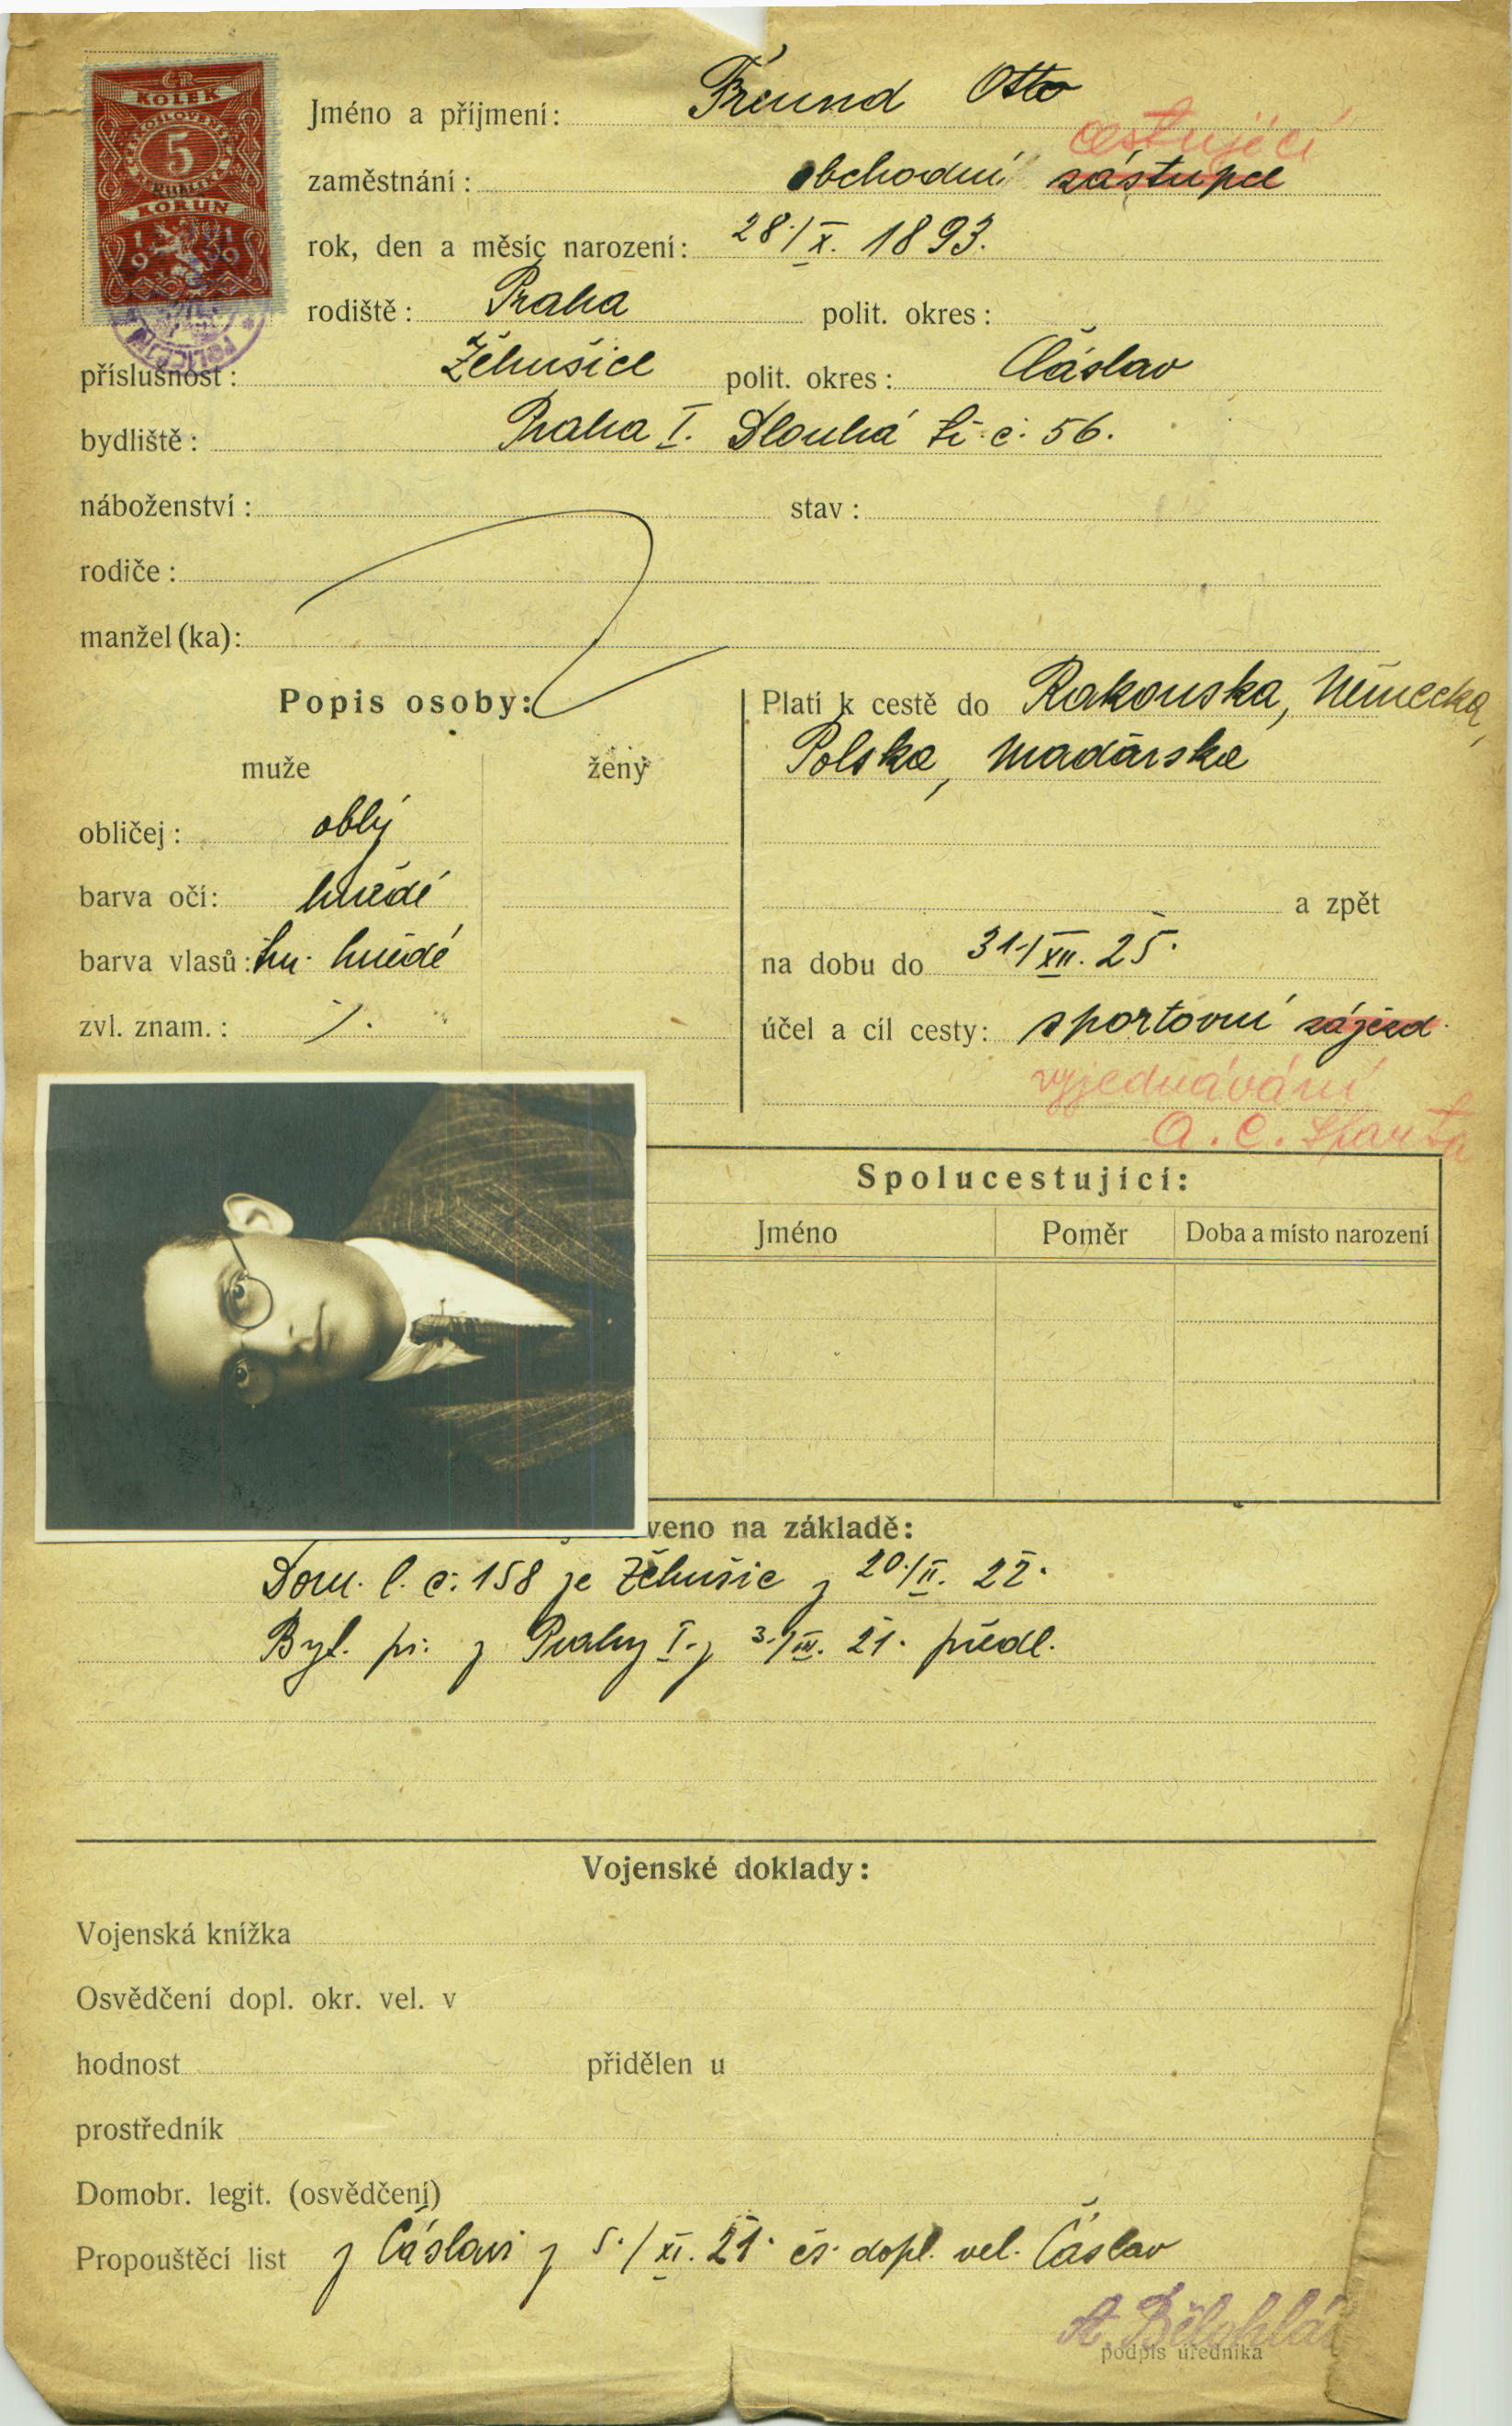 ČR
KOLEK
ČESKOSLOVENSKÁ
5
REPUBLIKA
KORUN
1919
Jméno a příjmení: Freund Otto
cestující
zaměstnání: obchodní zástupce
rok, den a měsíc narození: 28./X. 1893.
rodiště: Praha polit. okres:
příslušnost: Žehušice polit. okres: Čáslav
bydliště: Praha I. Dlouhá tř. č. 56.
náboženství: stav:
rodiče:
manžel(ka):
Popis osoby:
muže ženy
obličej: oblý
barva očí: hnědé
barva vlasů: tm. hnědé
zvl. znam.: /.
Platí k cestě do Rakouska, Německa,
Polska, Maďarska
a zpět
na dobu do 31./XII. 25.
účel a cíl cesty: sportovní zájezd.
vyjednávání
A. C. Sparta
Spolucestující:
Jméno Poměr Doba a místo narození
veno na základě:
Dom. l. č. 158 ze Žehušic z 20./II. 22.
Byt. př. z Prahy I. z 3./III. 21. předl.
Vojenské doklady:
Vojenská knížka
Osvědčení dopl. okr. vel. v
hodnost přidělen u
prostředník
Domobr. legit. (osvědčení)
Propouštěcí list z Čáslavi z 5./XI. 21. čs. dopl. vel. Čáslav
A. Bělohlá
podpis úředníka